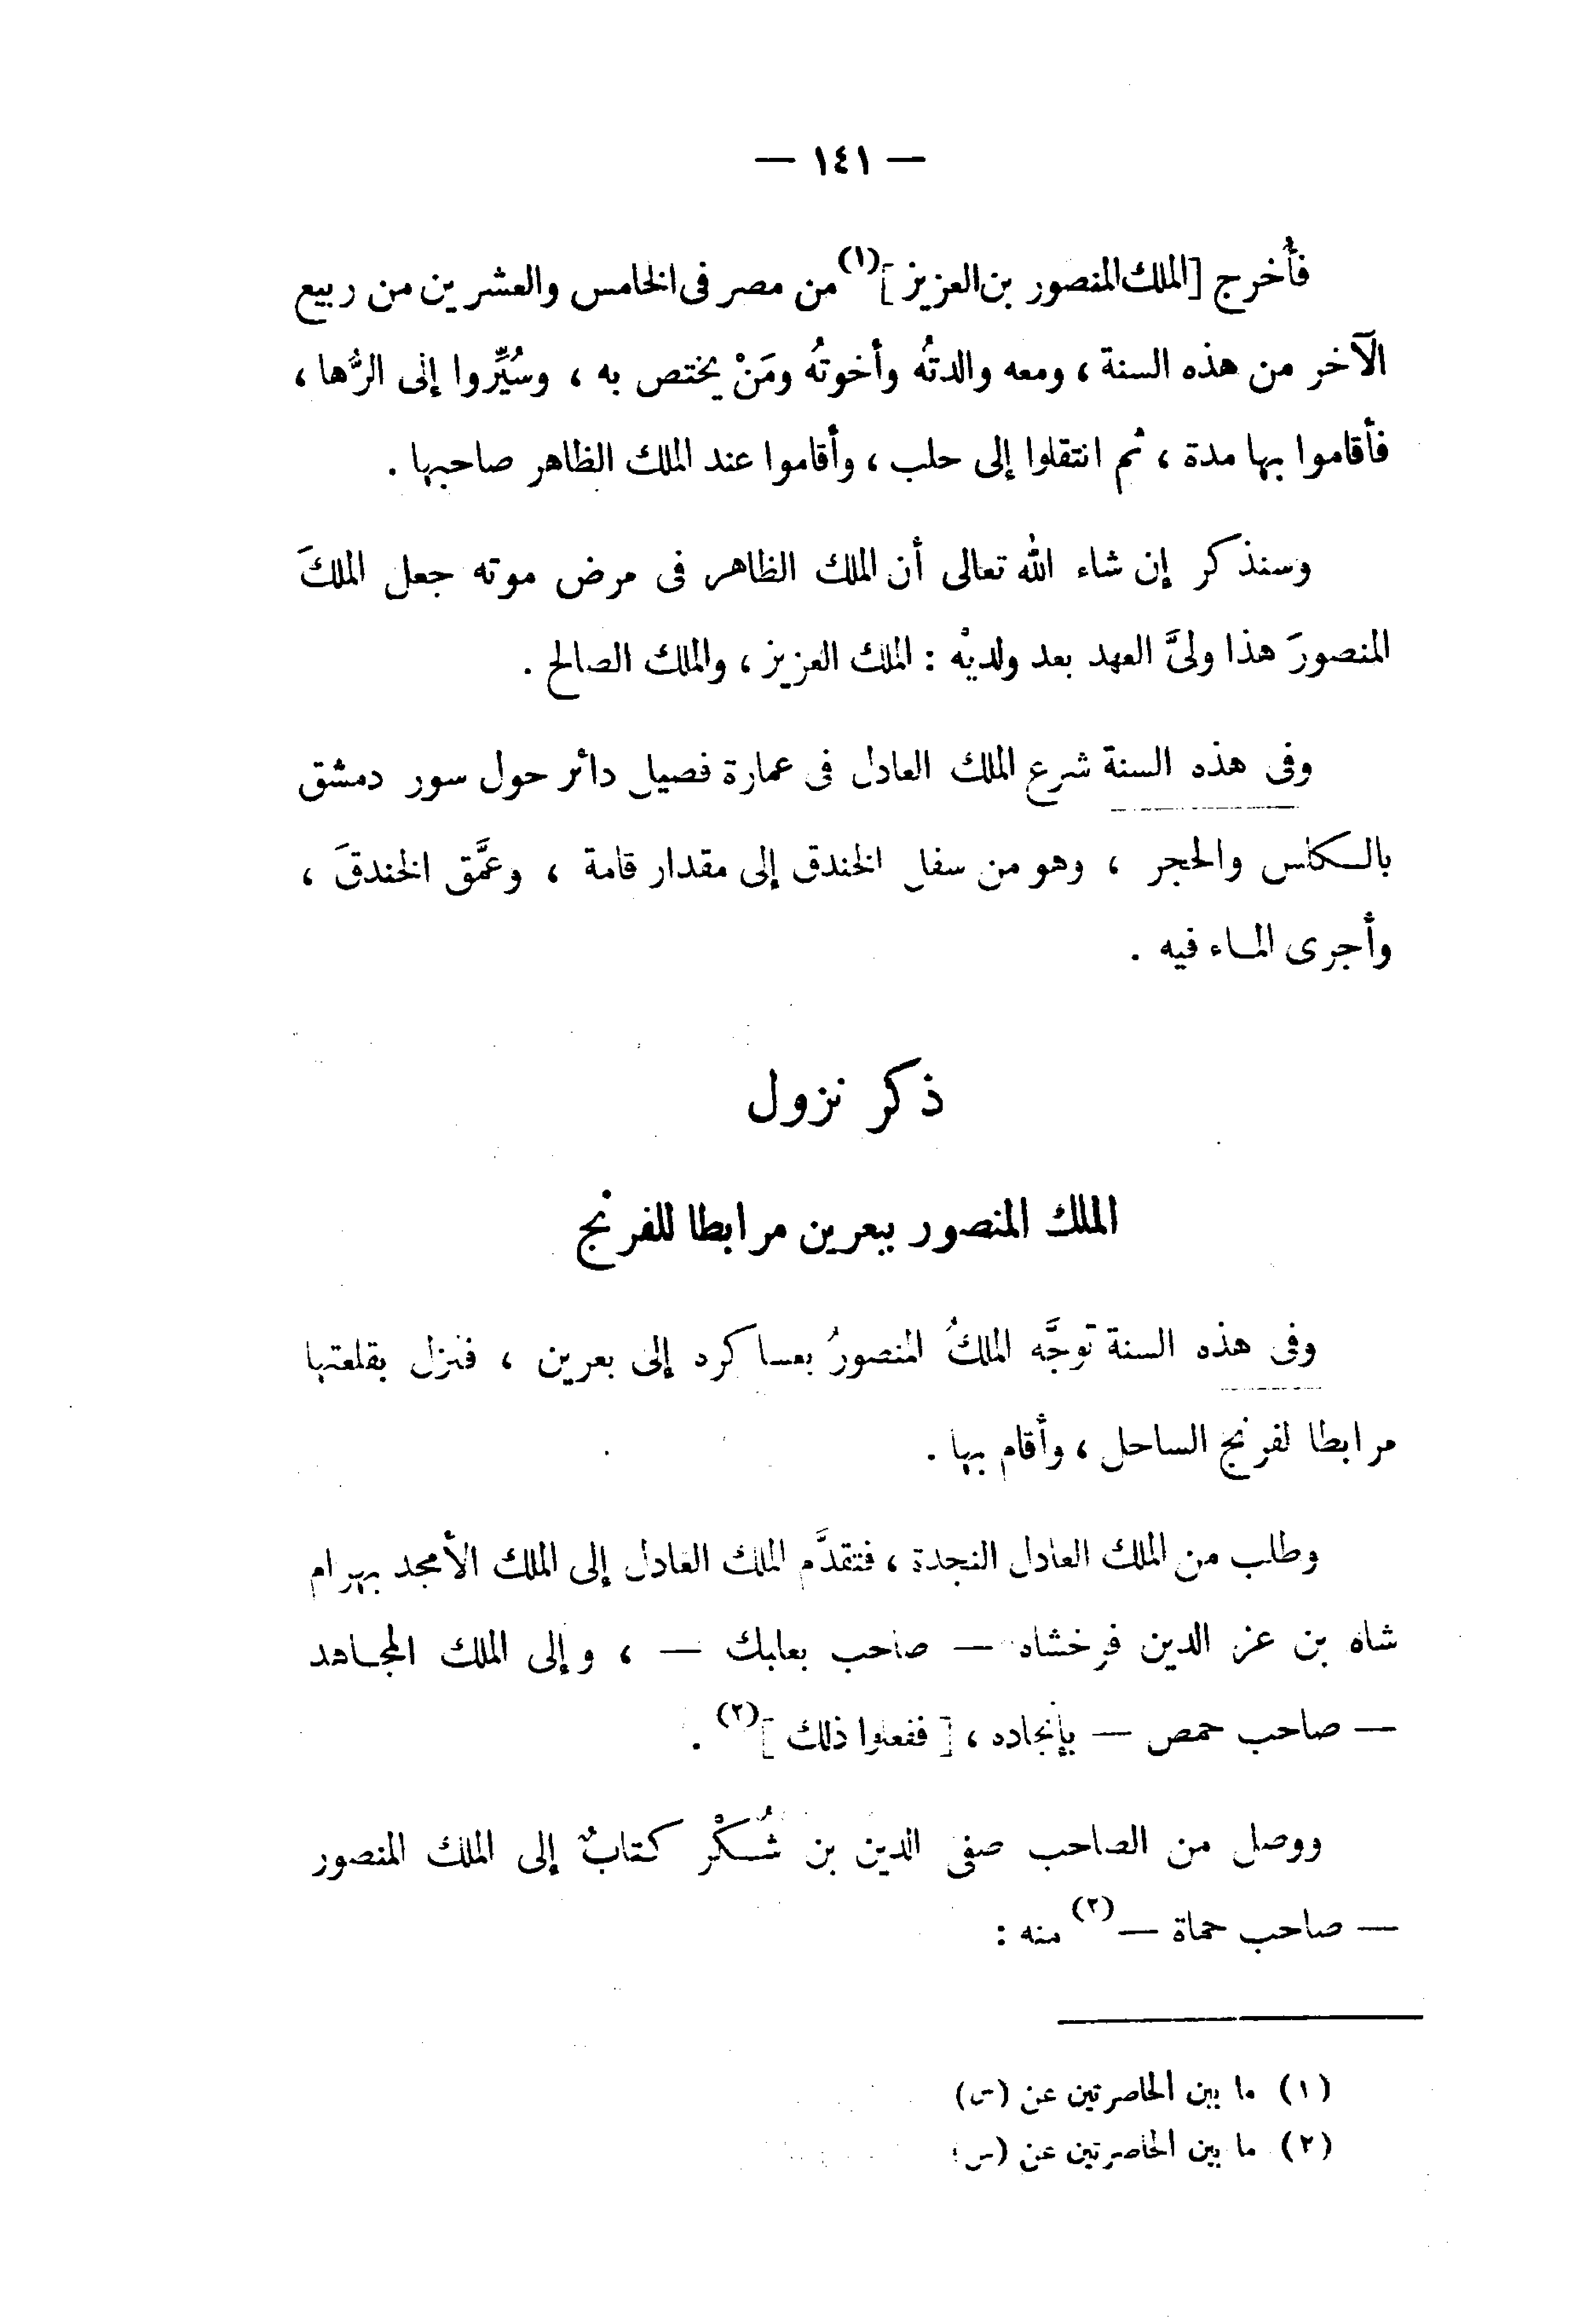 — ١٤١ —
فأُخرج [الملك المنصور بن العزيز](١) من مصر فى الخامس والعشرين من ربيع
الآخر من هذه السنة ، ومعه والدتُه وأخوتُه ومَنْ يختص به ، وسُيِّروا إلى الرُّها ،
فأقاموا بها مدة ، ثم انتقلوا إلى حلب ، وأقاموا عند الملك الظاهر صاحبها .
وسنذكر إن شاء الله تعالى أن الملك الظاهر فى مرض موته جعل الملكَ
المنصورَ هذا ولىَّ العهد بعد ولديْه : الملك العزيز ، والملك الصالح .
وفى هذه السنة شرع الملك العادل فى عمارة فصيل دائر حول سور دمشق
بالكلس والحجر ، وهو من سفل الخندق إلى مقدار قامة ، وعمَّق الخندقَ ،
وأجرى الماء فيه .
ذكر نزول
الملك المنصور ببعرين مرابطا للفرنج
وفى هذه السنة توجَّه الملكُ المنصورُ بعساكره إلى بعرين ، فنزل بقلعتها
مرابطا لفرنج الساحل ، وأقام بها .
وطلب من الملك العادل النجدة ، فتقدَّم الملك العادل إلى الملك الأمجد بهرام
شاه بن عز الدين فرخشاه — صاحب بعلبك — ، وإلى الملك المجاهد
— صاحب حمص — بإنجاده ، [ ففعلوا ذلك ](٢) .
ووصل من الصاحب صفى الدين بن شُكْر كتابٌ إلى الملك المنصور
— صاحب حماة —(٢) منه :
(١) ما بين الحاصرتين عن (س)
(٢) ما بين الحاصرتين عن (س)